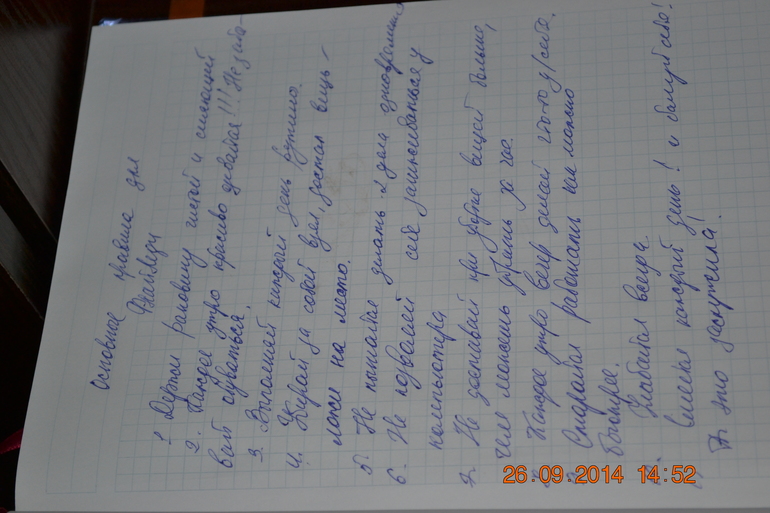 Основные правила для
Флайледи
1. Держи раковину чистой и сияющей
2. Каждое утро красиво одевайся!!! Не забы-
вай обуваться.
3. Выполняй каждый день рутины.
4. Убирай за собой взял, достал вещь -
ложи на место.
5. Не пытайся делать 2 дела одновременно
6. Не позволяй себе засиживаться у
компьютера
7. Не доставай при уборке вещей больше,
чем можешь убрать за час.
Каждое утро вечер делай что-то д/себя.
Старайся работать как можно
быстрее.
Улыбайся всегда.
Смейся каждый день! и балуй себя!
Ты это заслужила!
26.09.2014 14:52